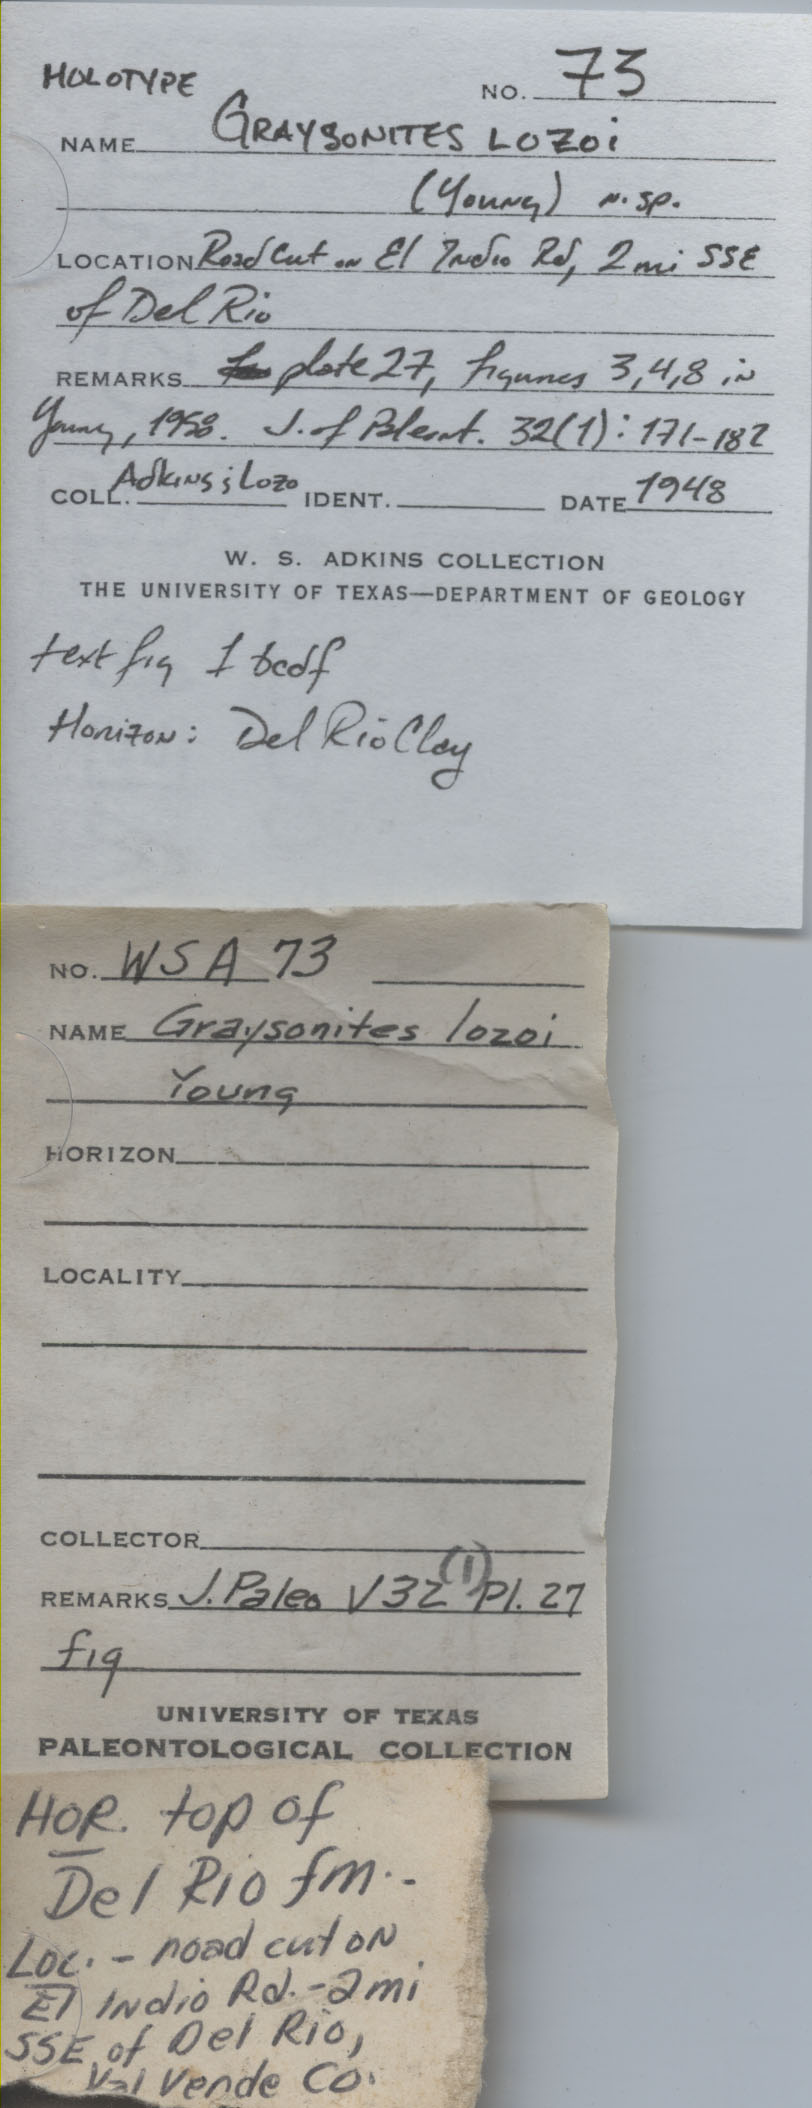 HOLOTYPE NO. 73
NAME GRAYSONITES LOZOI
(Young) n. sp.
LOCATION Road Cut on El Indio Rd, 2 mi SSE
of Del Rio
REMARKS plate 27, figures 3,4,8 in
Young, 1958. J. of Paleont. 32(1): 171-182
COLL. Adkins; Lozo IDENT. DATE 1948
W. S. ADKINS COLLECTION
THE UNIVERSITY OF TEXAS—DEPARTMENT OF GEOLOGY
text fig 1 bcdf
Horizon: Del Rio Clay
NO. WSA 73
NAME Graysonites lozoi
Young
HORIZON
LOCALITY
COLLECTOR
REMARKS J. Paleo V32 (1) Pl. 27
fig
UNIVERSITY OF TEXAS
PALEONTOLOGICAL COLLECTION
HOR. top of
Del Rio fm.-
Loc. - road cut on
El Indio Rd. - 2 mi
SSE of Del Rio,
Val Verde Co.